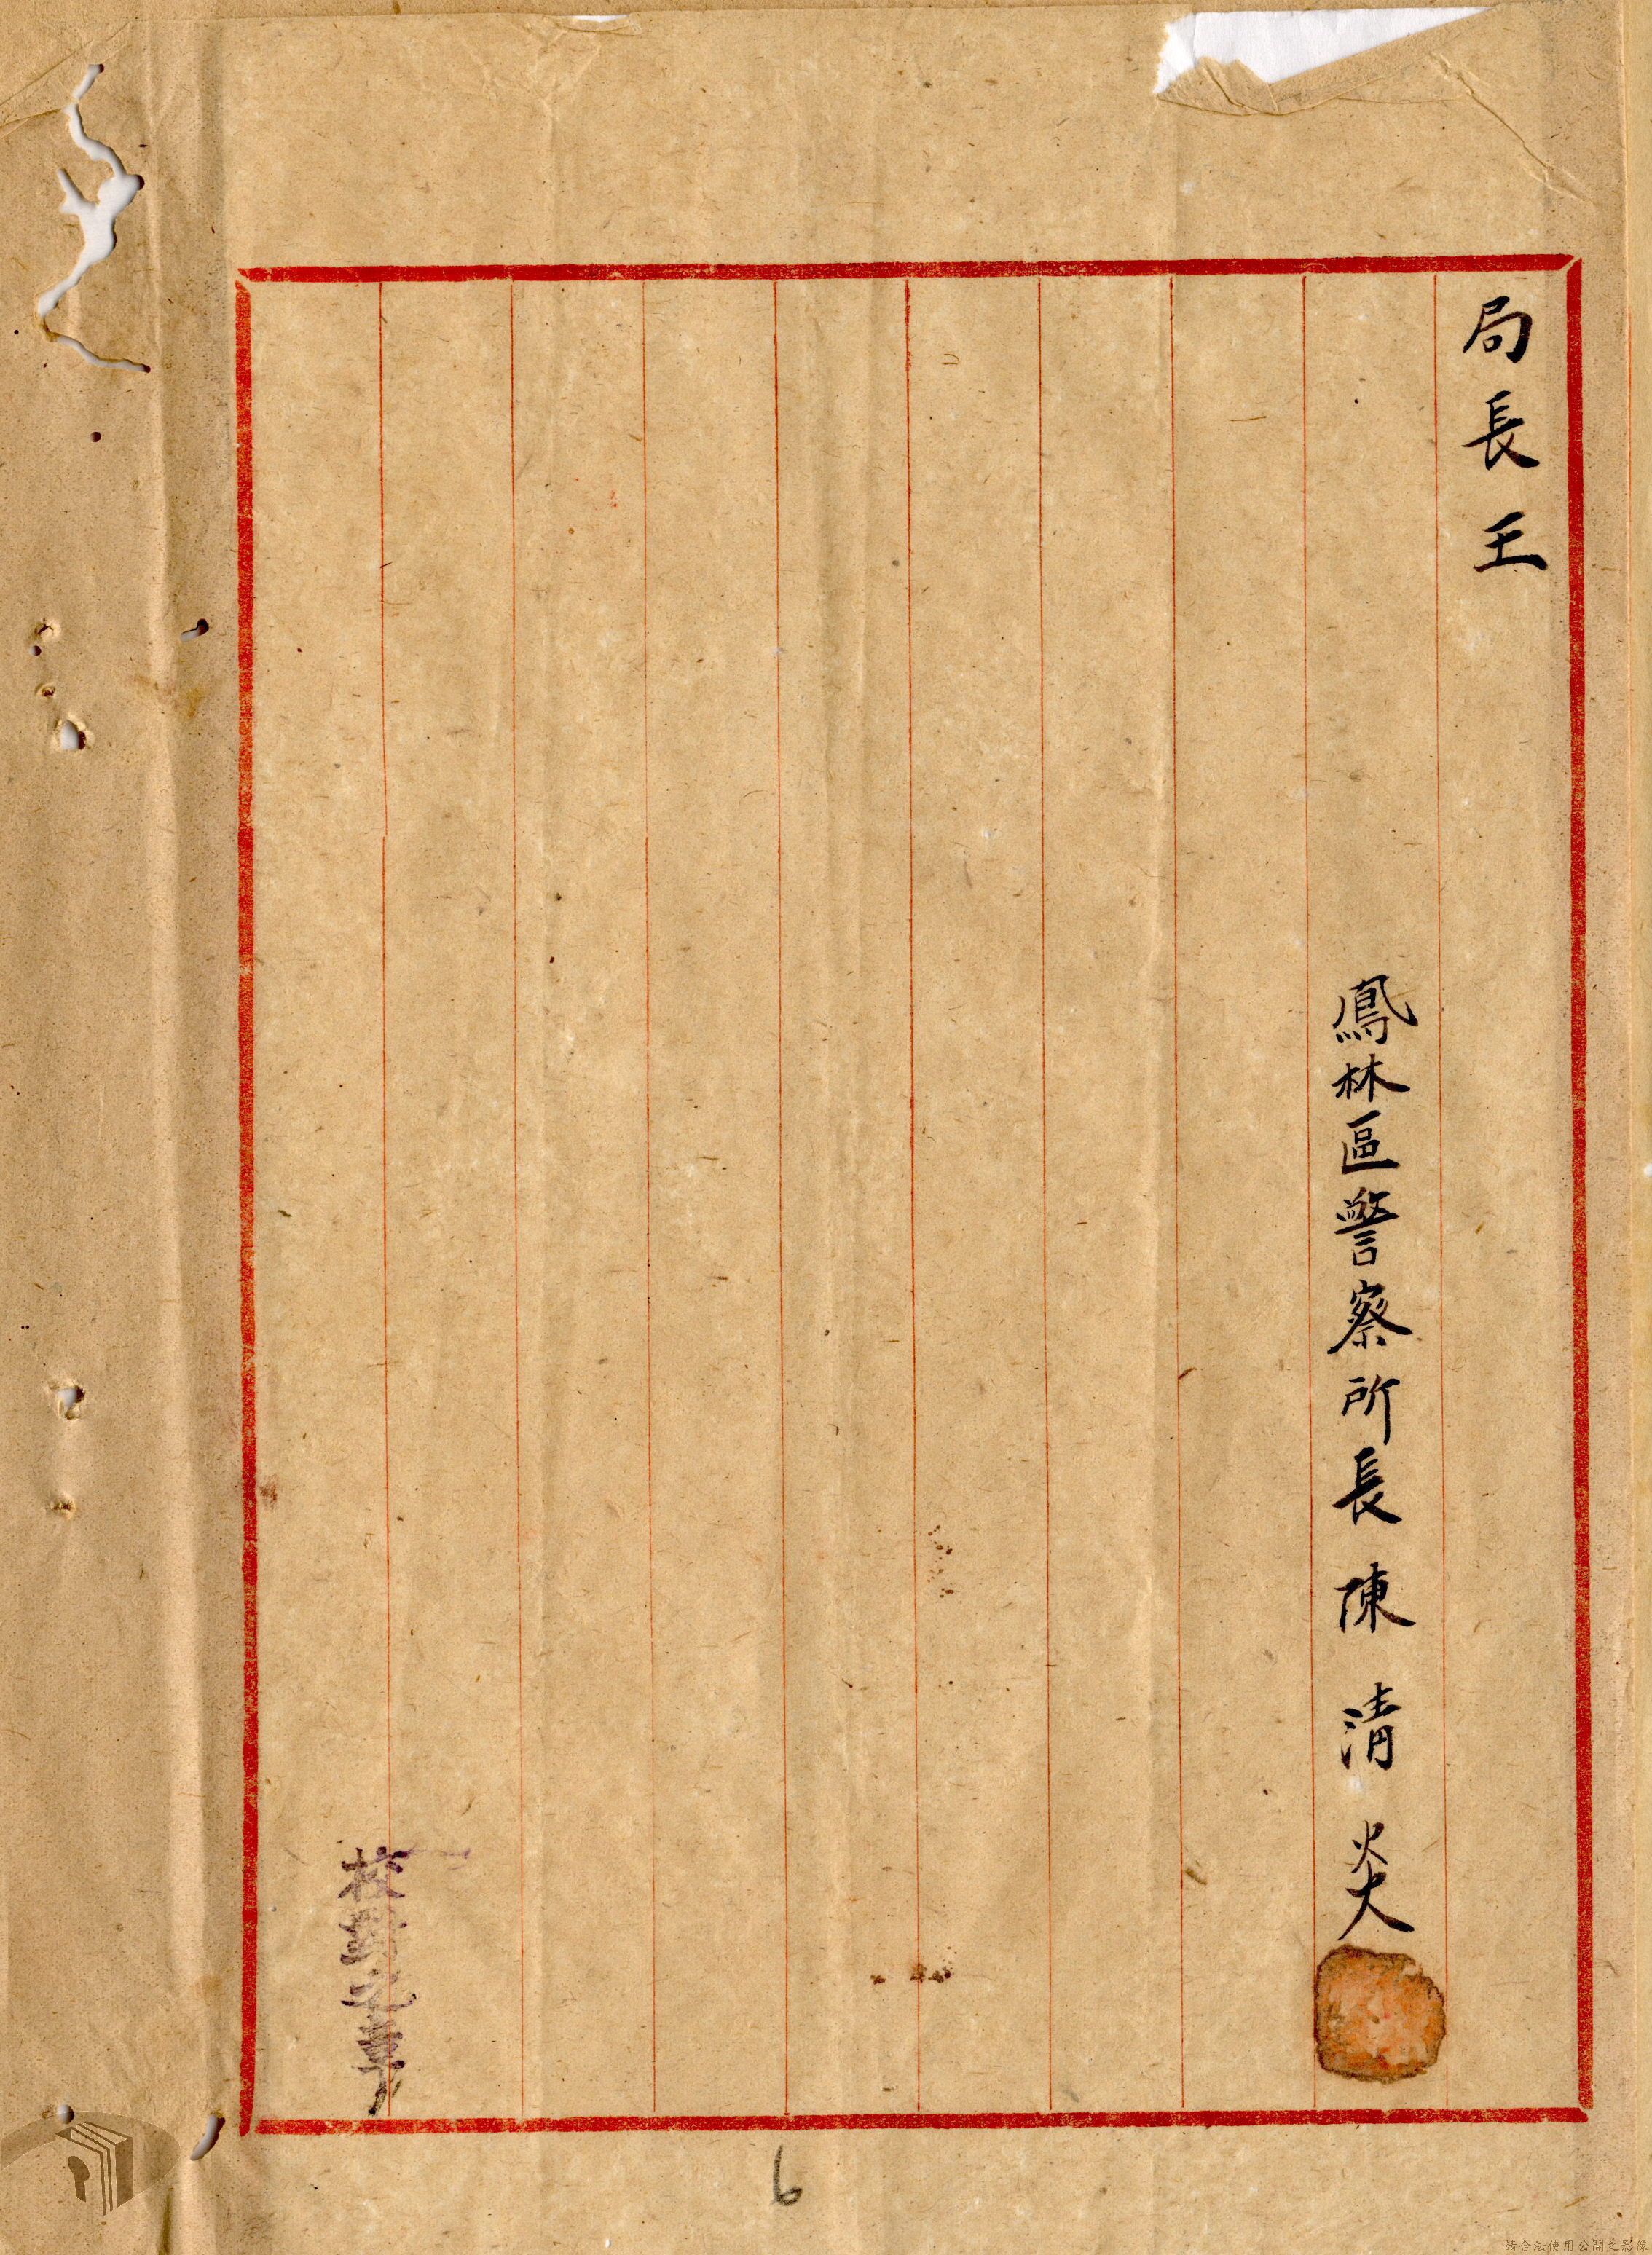 局長王
鳳林區警察所長陳清炎
校對之章
6
請合法使用公開之影像